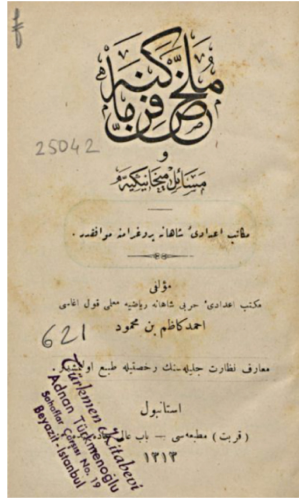 25042
و
مسائل میخانیکیه
مکاتب اعدادیٔ شاهانه پروغرامنه موافقدر .
مؤلفی
مکتب اعدادیٔ حربی شاهانه ریاضیه معلمی قول اغاسی
احمد کاظم بن محمود
621
معارف نظارت جلیله‌سنك رخصتیله طبع
استانبول
( قربت ) مطبعه‌سی — باب عالی
١٣١٣
Türkmen Kitabevi
Adnan Türkmenoğlu
Sahaflar Çarşısı No. 19
Beyazıt-İstanbul